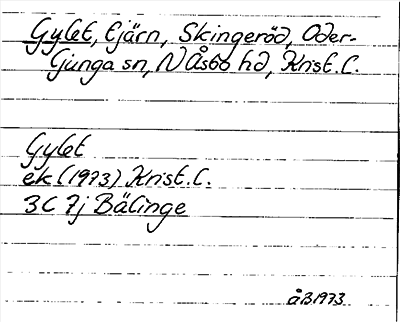 Gylet, tjärn, Skingeröd, Oder-
ljunga sn, N Åsbo hd, Krist.l.
Gylet
ek (1973) Krist.l.
3C 7j Bälinge
åB 1973